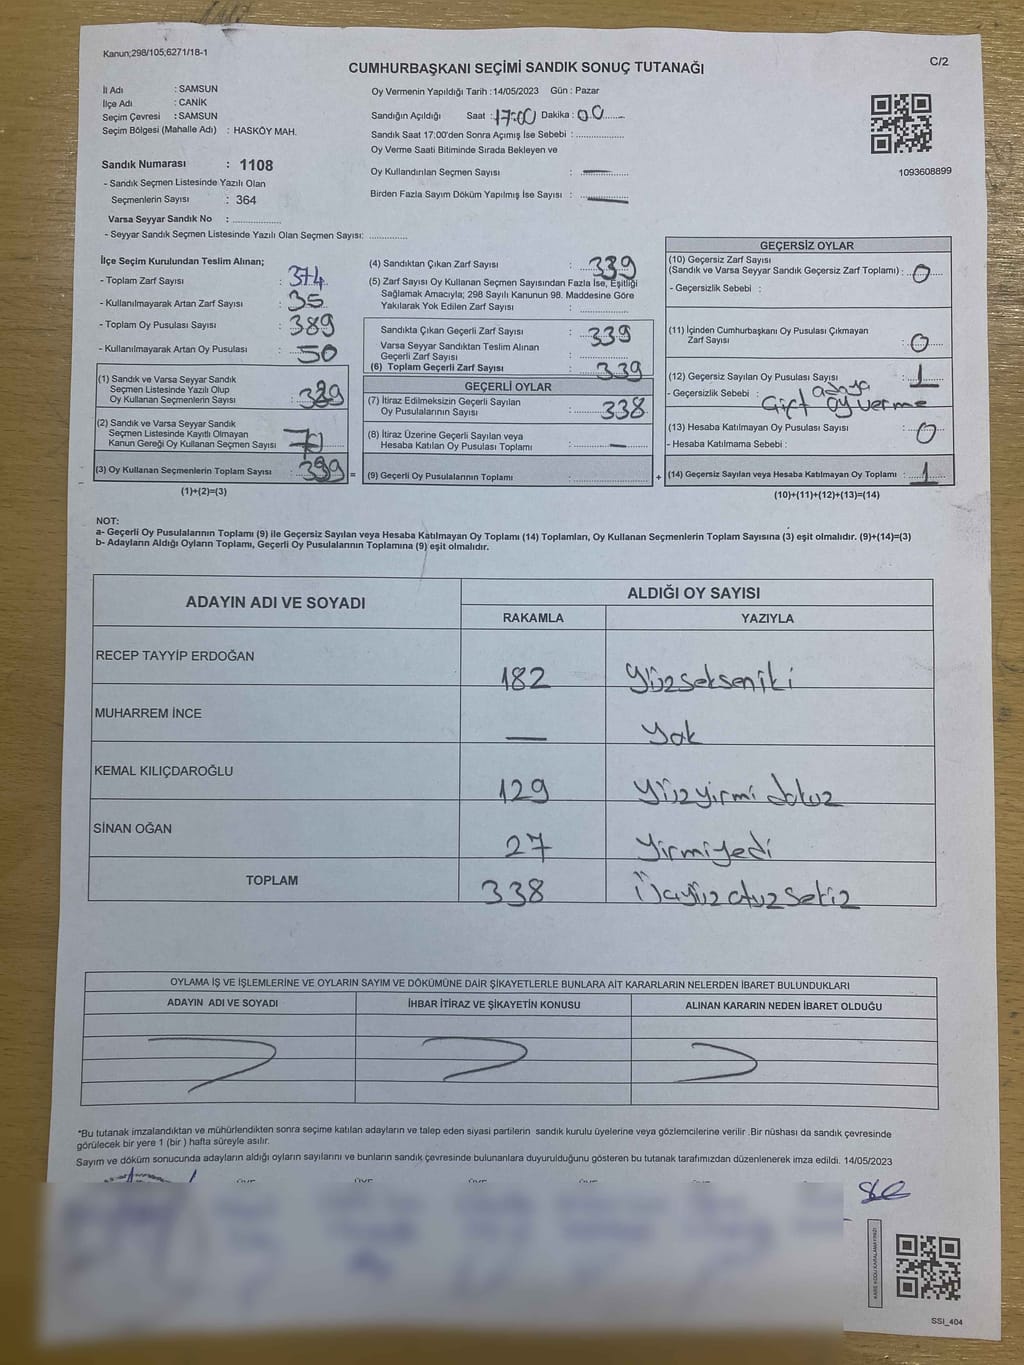 Kanun;298/105;6271/18-1
C/2
CUMHURBAŞKANI SEÇİMİ SANDIK SONUÇ TUTANAĞI
İl Adı : SAMSUN
İlçe Adı : CANİK
Seçim Çevresi : SAMSUN
Seçim Bölgesi (Mahalle Adı) : HASKÖY MAH.
Sandık Numarası : 1108
- Sandık Seçmen Listesinde Yazılı Olan
Seçmenlerin Sayısı : 364
Varsa Seyyar Sandık No : ..............
- Seyyar Sandık Seçmen Listesinde Yazılı Olan Seçmen Sayısı: ............
Oy Vermenin Yapıldığı Tarih : 14/05/2023 Gün : Pazar
Sandığın Açıldığı Saat : 17:00 Dakika : 00
Sandık Saat 17:00'den Sonra Açımış İse Sebebi : ..............
Oy Verme Saati Bitiminde Sırada Bekleyen ve
Oy Kullandırılan Seçmen Sayısı : —
Birden Fazla Sayım Döküm Yapılmış İse Sayısı : —
1093608899
İlçe Seçim Kurulundan Teslim Alınan;
- Toplam Zarf Sayısı : 374
- Kullanılmayarak Artan Zarf Sayısı : 35
- Toplam Oy Pusulası Sayısı : 389
- Kullanılmayarak Artan Oy Pusulası : 50
(1) Sandık ve Varsa Seyyar Sandık
Seçmen Listesinde Yazılı Olup
Oy Kullanan Seçmenlerin Sayısı :
(2) Sandık ve Varsa Seyyar Sandık
Seçmen Listesinde Kayıtlı Olmayan
Kanun Gereği Oy Kullanan Seçmen Sayısı :
(3) Oy Kullanan Seçmenlerin Toplam Sayısı : 339 =
(1)+(2)=(3)
(4) Sandıktan Çıkan Zarf Sayısı : 339
(5) Zarf Sayısı Oy Kullanan Seçmen Sayısından Fazla İse, Eşitliği
Sağlamak Amacıyla; 298 Sayılı Kanunun 98. Maddesine Göre
Yakılarak Yok Edilen Zarf Sayısı : ..............
Sandıkta Çıkan Geçerli Zarf Sayısı : 339
Varsa Seyyar Sandıktan Teslim Alınan
Geçerli Zarf Sayısı : ..............
(6) Toplam Geçerli Zarf Sayısı : 339
GEÇERLİ OYLAR
(7) İtiraz Edilmeksizin Geçerli Sayılan
Oy Pusulalarının Sayısı : 338
(8) İtiraz Üzerine Geçerli Sayılan veya
Hesaba Katılan Oy Pusulası Toplamı : —
(9) Geçerli Oy Pusulalarının Toplamı : .............. +
GEÇERSİZ OYLAR
(10) Geçersiz Zarf Sayısı
(Sandık ve Varsa Seyyar Sandık Geçersiz Zarf Toplamı) : 0
- Geçersizlik Sebebi :
(11) İçinden Cumhurbaşkanı Oy Pusulası Çıkmayan
Zarf Sayısı : 0
(12) Geçersiz Sayılan Oy Pusulası Sayısı : 1
- Geçersizlik Sebebi : adaya
Çift oy verme
(13) Hesaba Katılmayan Oy Pusulası Sayısı : 0
- Hesaba Katılmama Sebebi :
(14) Geçersiz Sayılan veya Hesaba Katılmayan Oy Toplamı : 1
(10)+(11)+(12)+(13)=(14)
NOT:
a- Geçerli Oy Pusulalarının Toplamı (9) ile Geçersiz Sayılan veya Hesaba Katılmayan Oy Toplamı (14) Toplamları, Oy Kullanan Seçmenlerin Toplam Sayısına (3) eşit olmalıdır. (9)+(14)=(3)
b- Adayların Aldığı Oyların Toplamı, Geçerli Oy Pusulalarının Toplamına (9) eşit olmalıdır.
ADAYIN ADI VE SOYADI
ALDIĞI OY SAYISI
RAKAMLA YAZIYLA
RECEP TAYYİP ERDOĞAN 182 Yüzsekseniki
MUHARREM İNCE — Yok
KEMAL KILIÇDAROĞLU 129 Yüzyirmi dokuz
SİNAN OĞAN 27 Yirmiyedi
TOPLAM 338 Üçyüz otuz sekiz
OYLAMA İŞ VE İŞLEMLERİNE VE OYLARIN SAYIM VE DÖKÜMÜNE DAİR ŞİKAYETLERLE BUNLARA AİT KARARLARIN NELERDEN İBARET BULUNDUKLARI
ADAYIN ADI VE SOYADI İHBAR İTİRAZ VE ŞİKAYETİN KONUSU ALINAN KARARIN NEDEN İBARET OLDUĞU
*Bu tutanak imzalandıktan ve mühürlendikten sonra seçime katılan adayların ve talep eden siyasi partilerin sandık kurulu üyelerine veya gözlemcilerine verilir .Bir nüshası da sandık çevresinde
görülecek bir yere 1 (bir ) hafta süreyle asılır.
Sayım ve döküm sonucunda adayların aldığı oyların sayılarını ve bunların sandık çevresinde bulunanlara duyurulduğunu gösteren bu tutanak tarafımızdan düzenlenerek imza edildi. 14/05/2023
KARE KODU KARALAMAYINIZ!
SSI_404